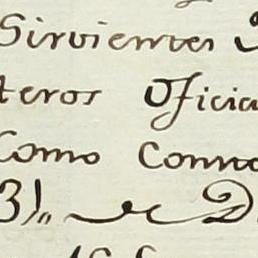 Sirvientes
teros Oficia
Como Conno
3)„ D